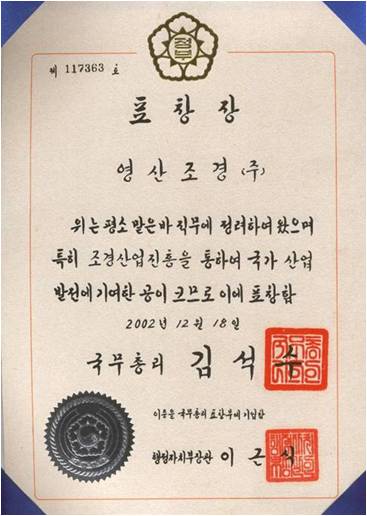 정부
제 117363 호
표창장
영산조경(주)
위는 평소 맡은바 직무에 정려하여 왔으며
특히 조경산업진흥을 통하여 국가 산업
발전에 기여한 공이 크므로 이에 표창함
2002년 12월 18일
국무총리 김석수
이 증을 국무총리 표창부에 기입함
행정자치부장관 이근식